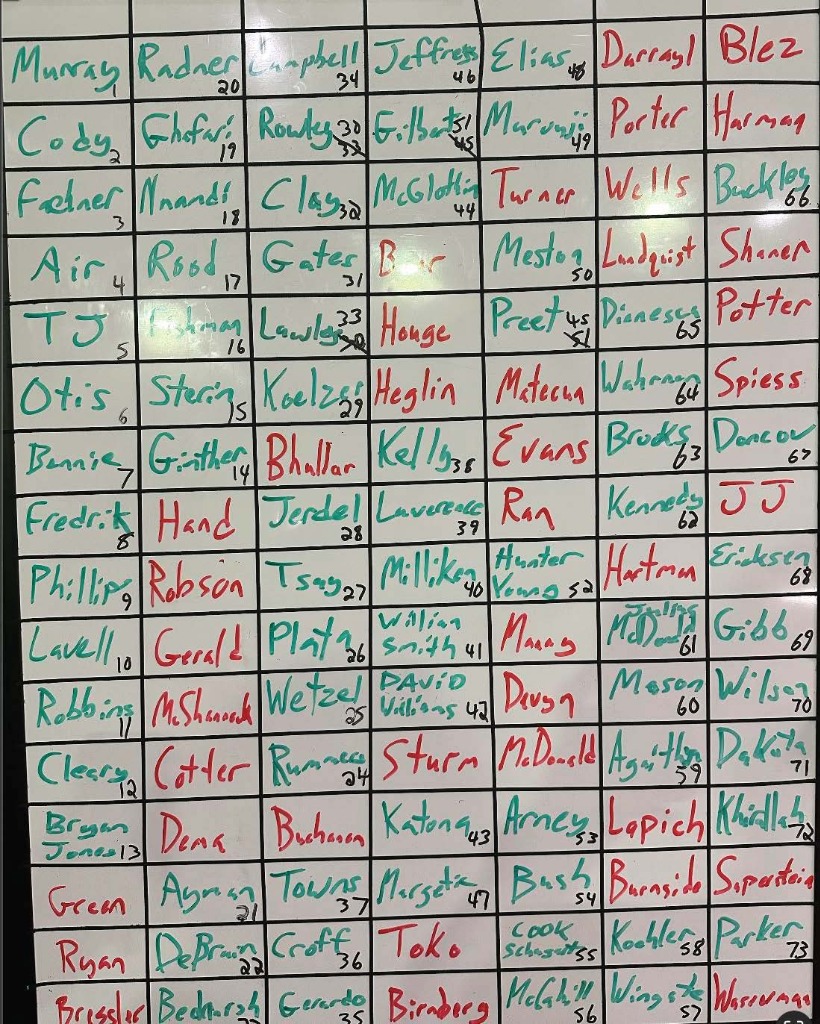 Murray 1 Radner 20 Campbell 34 Jeffress 46 Elias 48 Darrayl Blez
Cody 2 Ghafari 19 Rowley 30 33 Gilbert 51 45 49 Porter Harman
3 Nnandi 18 Clay 32 McGlothin 44 Turner Wells Buckley 66
Air 4 Rood 17 Gates 31 Meston 50 Lundquist Shaner
TJ 5 Fishman 16 Lawles 33 Houge Preet 45 51 Dianescu 65 Potter
Otis 6 Sterin 15 Koelzer 29 Heglin Matecun Wahrman 64 Spiess
Bennie 7 Ginther 14 Bhullar Kelly 38 Evans Brooks 63 Dancou 67
Fredrik 8 Hand Jerdel 28 Lawrence 39 Ran Kennedy 62 JJ
Phillips 9 Robson Tsay 27 Milliken 40 Hunter Young 52 Hartman Ericksen 68
Lavell 10 Gerald Plata 26 William Smith 41 Manny 61 Gibb 69
Robbins 11 McShannock Wetzel 25 DAVID Williams 42 Devyn Mason 60 Wilson 70
Cleary 12 Cotter 24 Sturm McDonald 59 Dakota 71
Bryan Jones 13 Dema Buchanan Katona 43 Arney 53 Lapich 72
Green Ayman 21 Towns 37 Margetic 47 Bush 54 Burnside Saperstein
Ryan DeBruin 22 Croff 36 Toko COOK 55 Koehler 58 Parker 73
Bressler Bednarsh Gerardo 35 Birnberg McCahill 56 Wingate 57 Wasserman